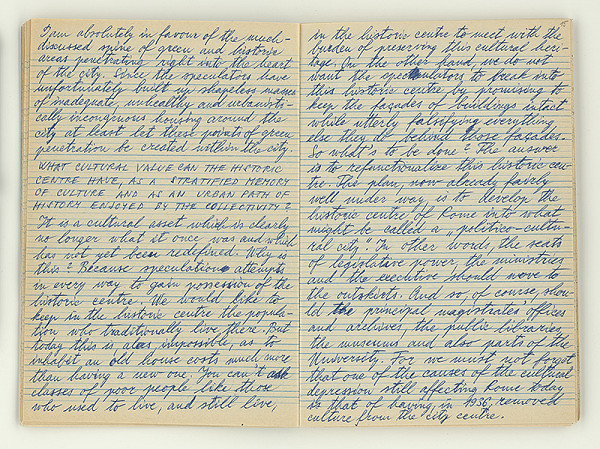 I am absolutely in favour of the much-
discussed spine of green and historic
areas penetrating right into the heart
of the city. Since the speculators have
unfortunately built up shapeless masses
of inadequate, unhealthy and urbanisti-
cally incongruous housing around the
city at least let these points of green
penetration be created within the city.
WHAT CULTURAL VALUE CAN THE HISTORIC
CENTRE HAVE, AS A STRATIFIED MEMORY
OF CULTURE AND AS AN URBAN PATH OF
HISTORY ENJOYED BY THE COLLECTIVITY?
It is a cultural asset which is clearly
no longer what it once was and which
has not yet been redefined. Why is
this? Because speculation attempts
in every way to gain possession of the
historic centre. We would like to
keep in the historic centre the popula-
tion who traditionally live there. But
today this is also impossible, as to
inhabit an old house costs much more
than having a new one. You can't ask
classes of poor people like those
who used to live, and still live,
15
in the historic centre to meet with the
burden of preserving this cultural heri-
tage. On the other hand, we do not
want the speculators to break into
this historic centre by promising to
keep the façades of buildings intact
while utterly falsifying everything
else they do behind those façades.
So what's to be done? The answer
is to refunctionalize this historic cen-
tre. This plan, now already fairly
well under way is to develop the
historic centre of Rome into what
might be called a "politico-cultu-
ral city." In other words, the seats
of legislative power, the ministries
and the executive should move to
the outskirts. And so, of course, shou-
ld the principal magistrates' offices
and archives, the public libraries,
the museums and also parts of the
University. For we must not forget
that one of the causes of the cultural
depression still affecting Rome today
is that of having, in 1936, removed
culture from the city centre.